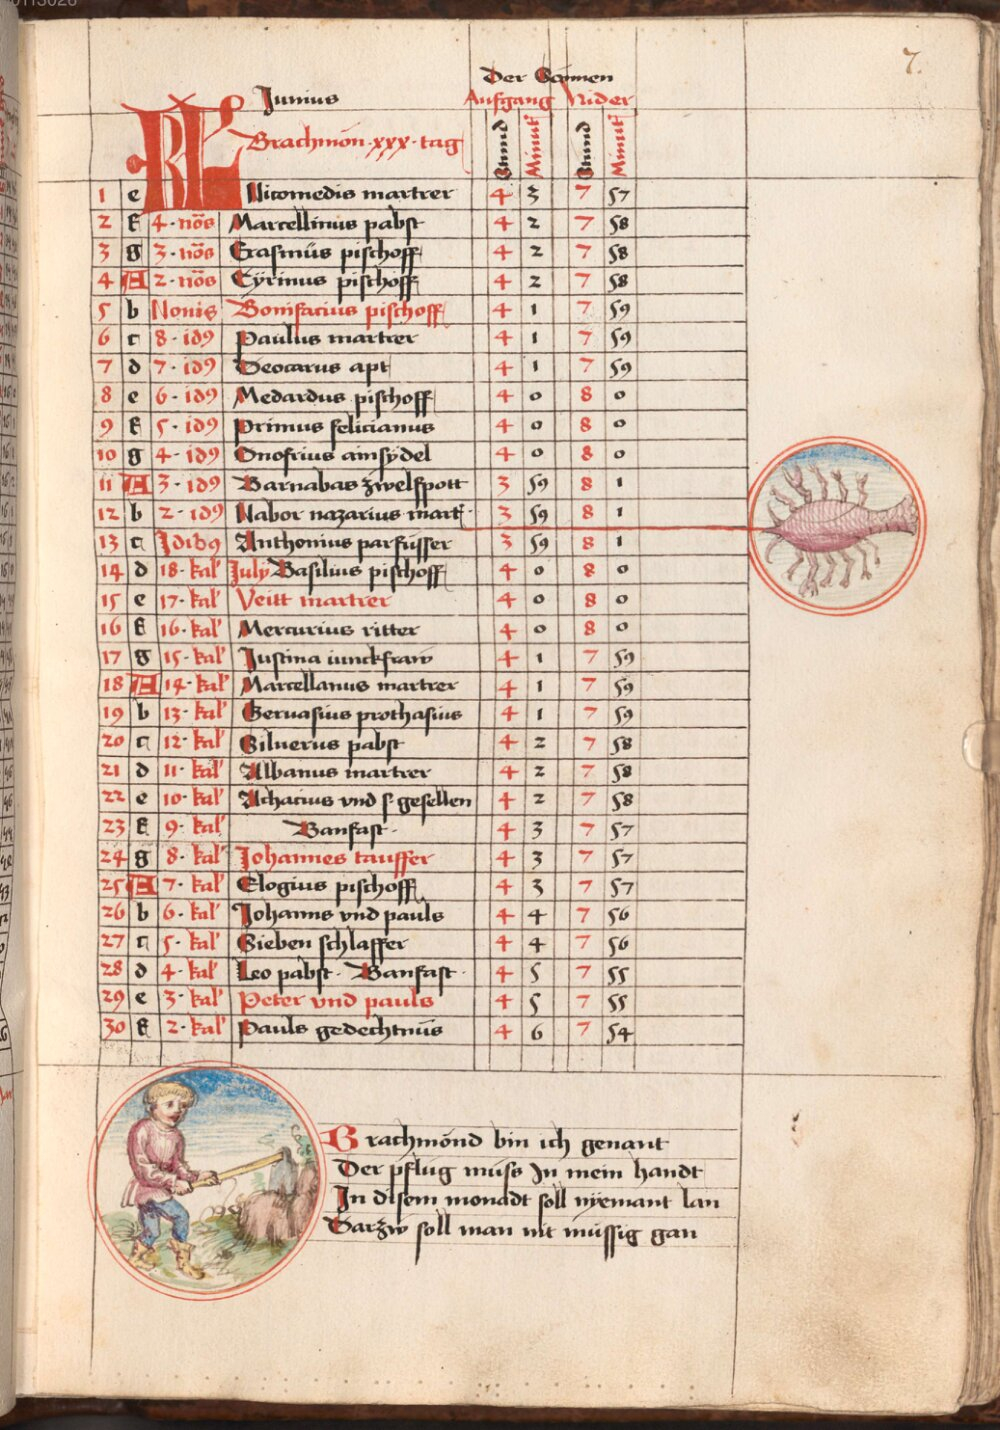 7.
Der Sonnen
Junius Aufgang Nider
KL Brachmon · xxx · tag Stund Minut Stund Minut
1 e Nicomedis martrer 4 3 7 57
2 f 4 · nōs Marcellinus pabst 4 2 7 58
3 g 3 · nōs Erasmus pischoff 4 2 7 58
4 A 2 · nōs Cÿrinus pischoff 4 2 7 58
5 b Nonis Bonifacius pischoff 4 1 7 59
6 c 8 · id9 Paulus martrer 4 1 7 59
7 d 7 · id9 Deocarus apt 4 1 7 59
8 e 6 · id9 Medardus pischoff 4 0 8 0
9 f 5 · id9 Primus felicianus 4 0 8 0
10 g 4 · id9 Onofrius ainsÿdel 4 0 8 0
11 A 3 · id9 Barnabas zwelfpott 3 59 8 1
12 b 2 · id9 Nabor nazarius mart 3 59 8 1
13 c Idib9 Anthonius parfusser 3 59 8 1
14 d 18 · kal' July Basilius pischoff 4 0 8 0
15 e 17 · kal' Veitt martrer 4 0 8 0
16 f 16 · kal' Mercurius ritter 4 0 8 0
17 g 15 · kal' Justina iunckfraw 4 1 7 59
18 A 14 · kal' Marcellanus martrer 4 1 7 59
19 b 13 · kal' Geruasius prothasius 4 1 7 59
20 c 12 · kal' Siluerus pabst 4 2 7 58
21 d 11 · kal' Albanus martrer 4 2 7 58
22 e 10 · kal' Achacius vnd s· gesellen 4 2 7 58
23 f 9 · kal' Banfast · 4 3 7 57
24 g 8 · kal' Johannes tauffer 4 3 7 57
25 A 7 · kal' Elogius pischoff 4 3 7 57
26 b 6 · kal' Johanns vnd pauls 4 4 7 56
27 c 5 · kal' Sieben schlaffer 4 4 7 56
28 d 4 · kal' Leo pabst · Banfast · 4 5 7 55
29 e 3 · kal' Peter vnd pauls 4 5 7 55
30 f 2 · kal' Pauls gedechtnüs 4 6 7 54
Brachmönd bin ich genant
Der pflug muss In mein handt
In disem monadt soll nÿemant lan
Darzw soll man nit mussig gan